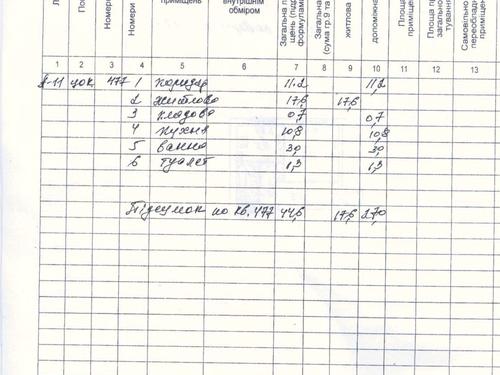 приміщень
внутрішнім
обміром
Номери
Номери
Загальна
формулами
Загальна
(сума гр 9 та
житлова
допоміжна
Площа
Площа
загально
Самовільно
переобладн
приміщен
1 2 3 4 5 6 7 8 9 10 11 12 13
А-11 цок 477 1 коридор 11.2 11,2
2 житлова 17,6 17,6
3 кладова 0,7 0,7
4 кухня 10,8 10,8
5 ванна 3,0 3,0
6 туалет 1,3 1,3
Підсумок по кв. 477 44,6 17,6 27,0